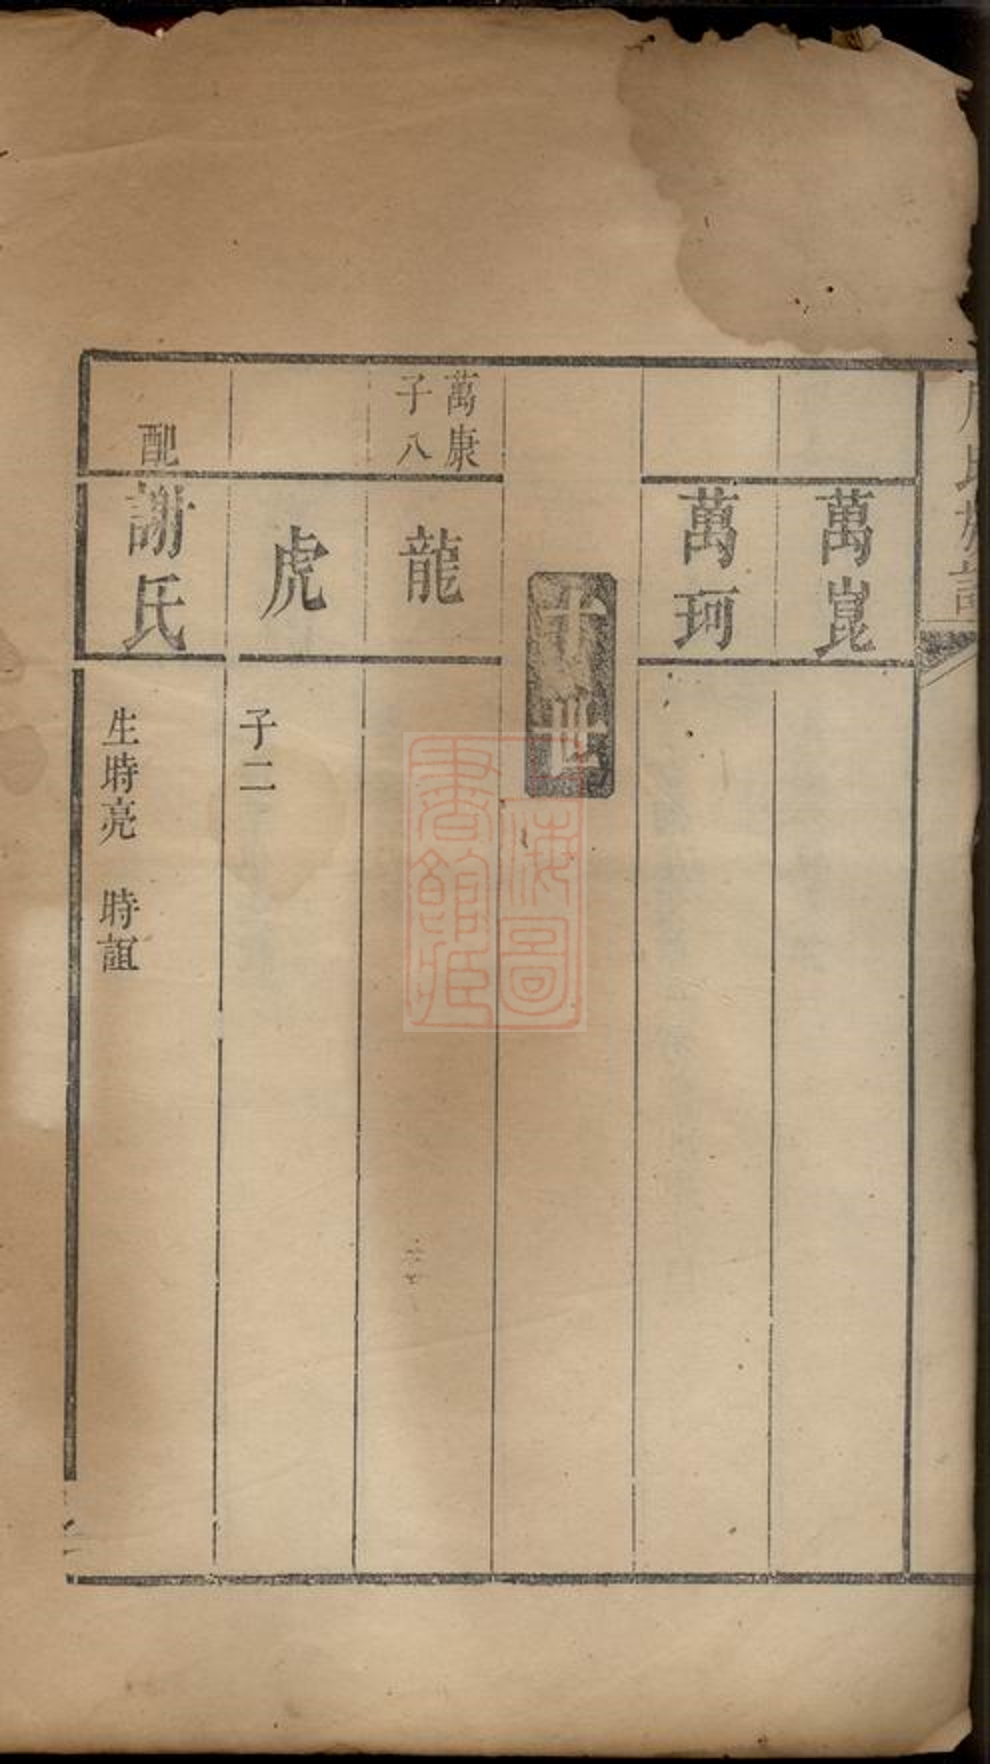 萬崑
萬珂
萬康
子八
龍
虎
子二
配
謝氏
生時亮　時誼
海圖
書館藏